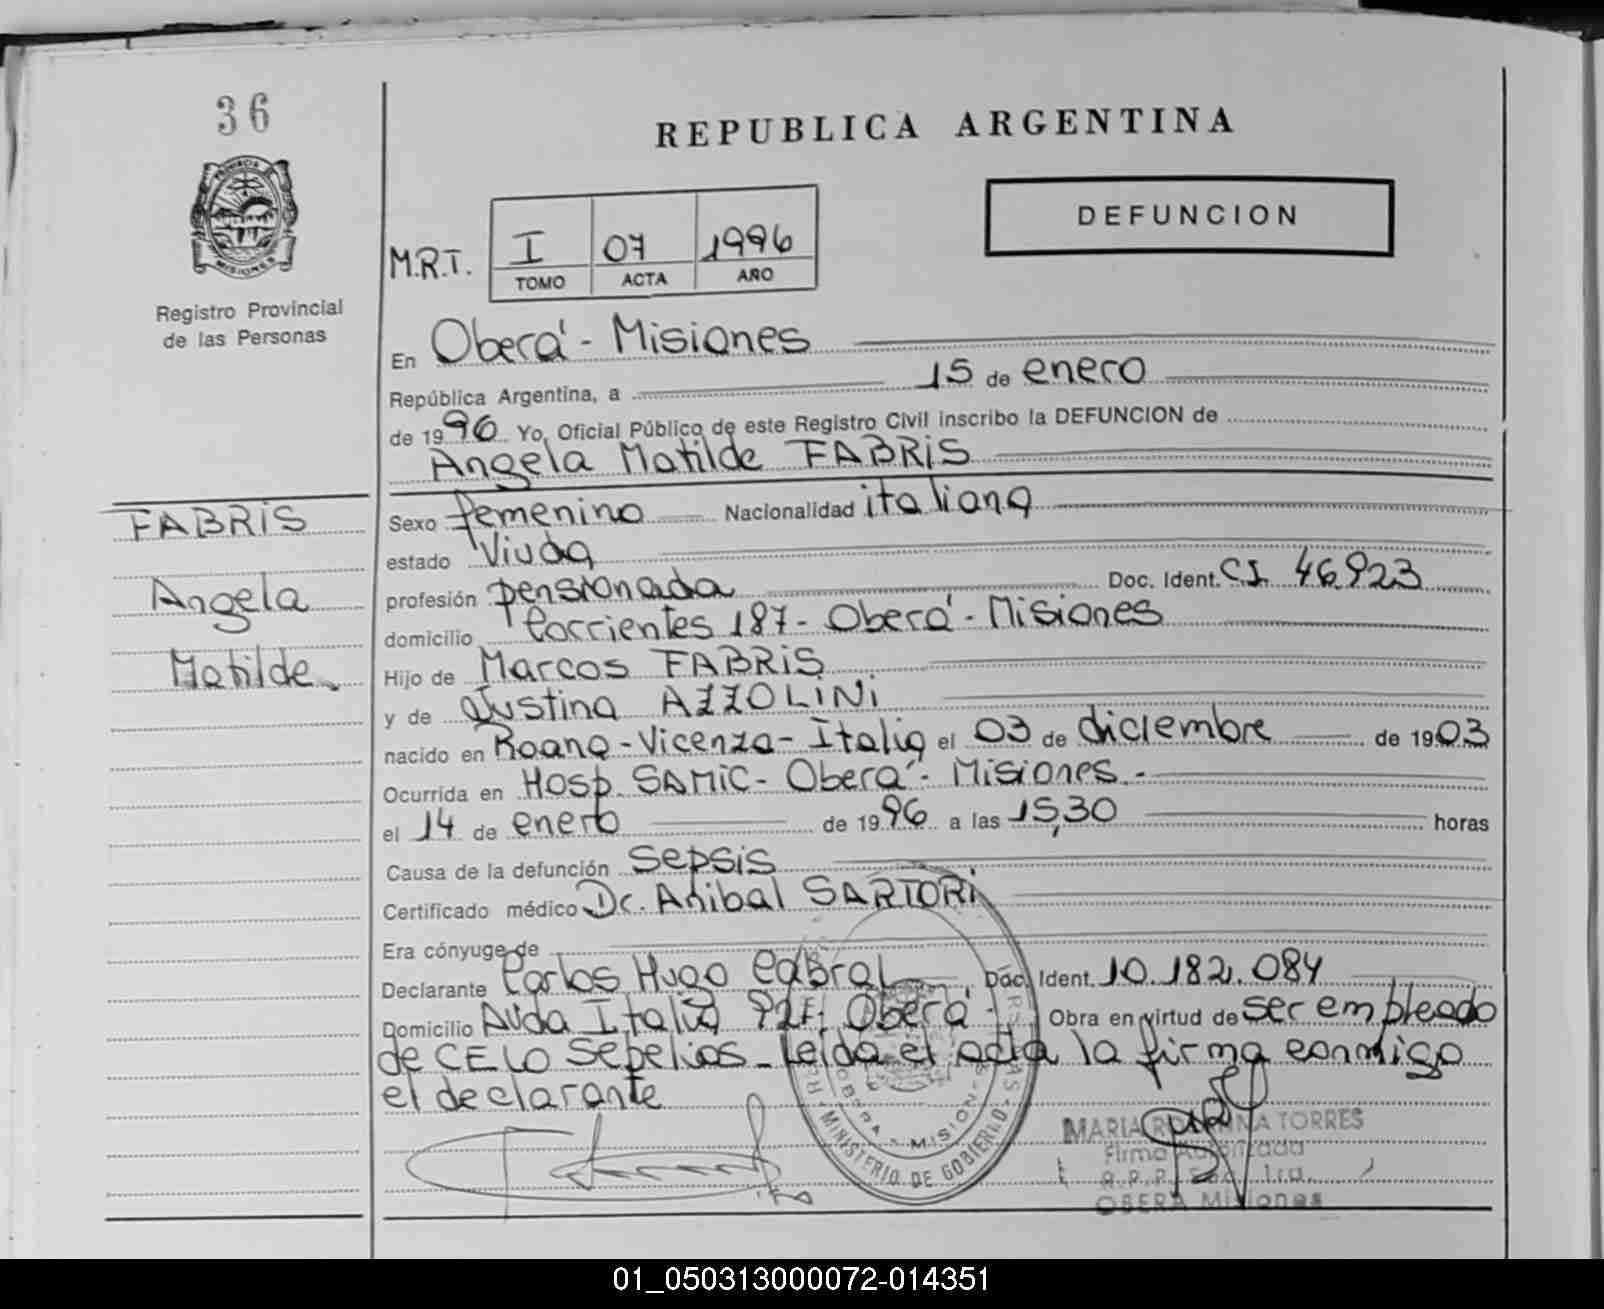 36
REPUBLICA ARGENTINA
PROVINCIA
MISIONES
Registro Provincial
de las Personas
M.R.T.
I 07 1996
TOMO ACTA AÑO
DEFUNCION
En Oberá - Misiones
República Argentina, a 15 de enero
de 1996 Yo, Oficial Público de este Registro Civil inscribo la DEFUNCION de
Angela Matilde FABRIS
FABRIS
Angela
Matilde
Sexo femenino Nacionalidad italiana
estado Viuda
profesión pensionada Doc. Ident. C.I. 46.923
domicilio Corrientes 187 - Oberá - Misiones
Hijo de Marcos FABRIS
y de Justina AZZOLINI
nacido en Roana - Vicenza - Italia el 03 de diciembre de 1903
Ocurrida en Hosp. SAMIC - Oberá - Misiones.-
el 14 de enero de 1996 a las 15,30 horas
Causa de la defunción Sepsis
Certificado médico Dr. Anibal SARTORI
Era cónyuge de
Declarante Carlos Hugo Cabral Doc. Ident. 10.182.084
Domicilio Avda Italia Oberá - Obra en virtud de ser empleado
de CELO Sepelios - Leída el acta la firma conmigo
el declarante
MINISTERIO DE GOBIERNO
OBERA - MISIONES
MARIA TORRES
Firma Autorizada
OBERA Misiones
01_050313000072-014351